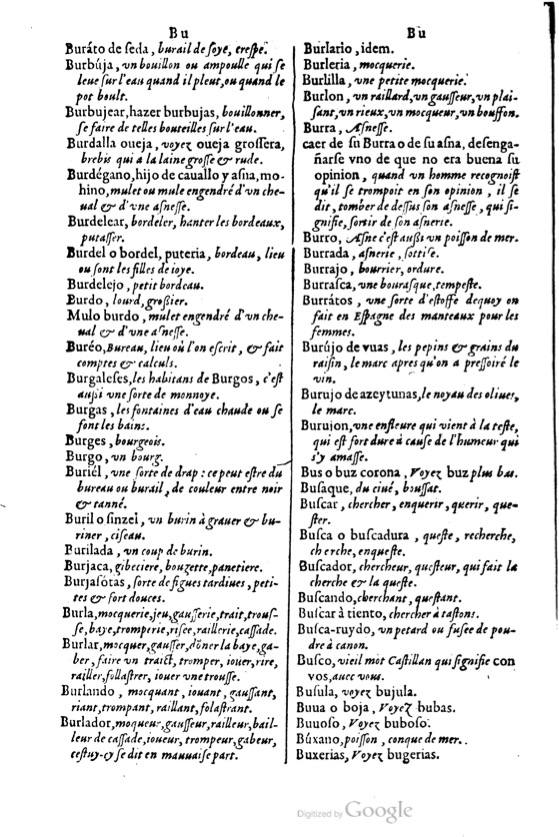 Bu
Buráto de seda, burail de soye, crespe.
Burbúja, vn bouillon ou ampoulle qui se
leue sur l'eau quand il pleut, ou quand le
pot boult.
Burbujear, hazer burbujas, bouillonner,
se faire de telles bouteilles sur l'eau.
Burdalla oueja, voyez oueja grossera,
brebis qui a la laine grosse & rude.
Burdégano, hijo de cauallo y asna, mo-
hino, mulet ou mule engendré d'vn che-
ual & d'vne asnesse.
Burdelear, bordeler, hanter les bordeaux,
putasser.
Burdel o bordel, puteria, bordeau, lieu
ou sont les filles de ioye.
Burdelejo, petit bordeau.
Burdo, lourd, grossier.
Mulo burdo, mulet engendré d'vn che-
ual & d'vne asnesse.
Buréo, Bureau, lieu où l'on escrit, & fait
comptes & calculs.
Burgaleses, les habitans de Burgos, c'est
aussi vne sorte de monnoye.
Burgas, les fontaines d'eau chaude ou se
font les bains.
Burges, bourgeois.
Burgo, vn bourg.
Buriél, vne sorte de drap: ce peut estre du
bureau ou burail, de couleur entre noir
& tanné.
Buril o sinzel, vn burin à grauer & bu-
riner, ciseau.
Purilada, vn coup de burin.
Burjaca, gibeciere, bougette, panetiere.
Burjasótas, sorte de figues tardiues, peti-
tes & fort douces.
Burla, mocquerie, jeu, gausserie, trait, trous-
se, baye, tromperie, risee, raillerie, cassade.
Burlar, mocquer, gausser, dõner la baye, ga-
ber, faire vn traict, tromper, iouer, rire,
railler, follastrer, iouer vne trousse.
Burlando, mocquant, iouant, gaussant,
riant, trompant, raillant, folastrant.
Burlador, moqueur, gausseur, railleur, bail-
leur de cassade, ioueur, trompeur, gabeur,
cestuy-cy se dit en mauuaise part.
Bu
Burlario, idem.
Burleria, mocquerie.
Burlilla, vne petite mocquerie.
Burlon, vn raillard, vn gausseur, vn plai-
sant, vn rieux, vn mocqueur, vn bouffon.
Burra, Asnesse.
caer de su Burra o de su asna, desenga-
ñarse vno de que no era buena su
opinion, quand vn homme recognoist
qu'il se trompoit en son opinion, il se
dit, tomber de dessus son asnesse, qui si-
gnifie, sortir de son asnerie.
Burro, Asne c'est aussi vn poisson de mer.
Burrada, asnerie, sottise.
Burrajo, bourrier, ordure.
Burrasca, vne bourasque, tempeste.
Burrátos, vne sorte d'estoffe dequoy on
fait en Espagne des manteaux pour les
femmes.
Burújo de vuas, les pepins & grains du
raisin, le marc apres qu'on a pressoiré le
vin.
Burujo de azeytunas, le noyau des oliues,
le marc.
Burujon, vne enfleure qui vient à la teste,
qui est fort dure à cause de l'humeur qui
s'y amasse.
Bus o buz corona, Voyez buz plus bas.
Busaque, du ciué, boussat.
Buscar, chercher, enquerir, querir, que-
ster.
Busca o buscadura, queste, recherche,
ch erche, enqueste.
Buscador, chercheur, questeur, qui fait la
cherche & la queste.
Buscando, cherchant, questant.
Buscar à tiento, chercher à tastons.
Busca-ruydo, vn petard ou fusee de pou-
dre à canon.
Busco, vieil mot Castillan qui signifie con
vos, auec vous.
Busula, voyez bujula.
Buua o boja, Voyez bubas.
Buuoso, Voyez buboso.
Búxano, poisson, conque de mer.
Buxerias, Voyez bugerias.
Digitized by Google